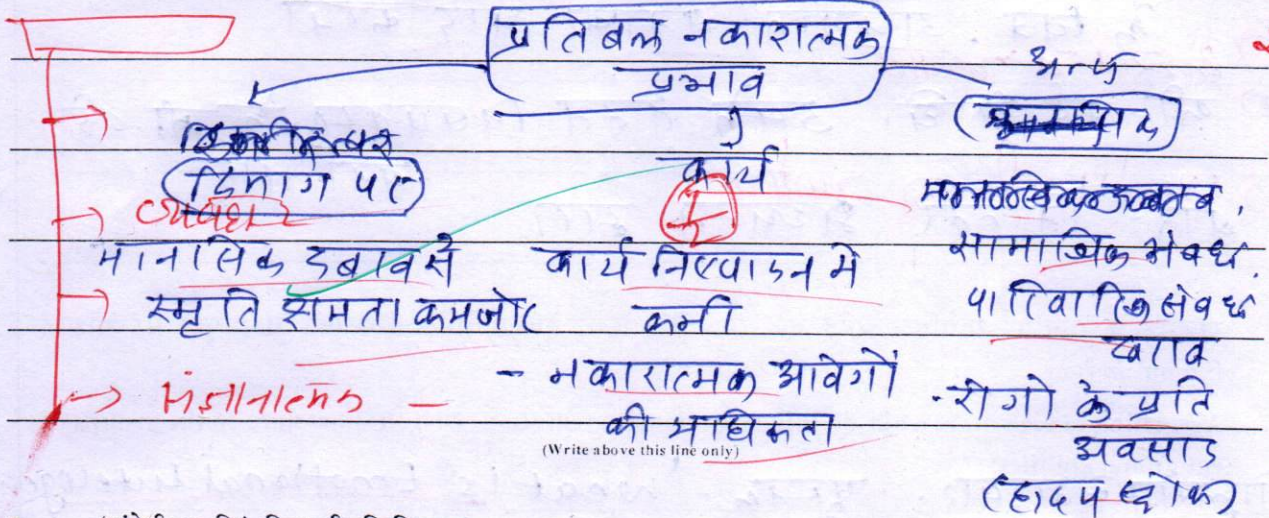 प्रतिबल नकारात्मक
प्रभाव
दिमाग पर
व्यवहार
मानसिक दबाव से
स्मृति क्षमता कमजोर
संज्ञानात्मक -
कार्य
कार्य निष्पादन मे
कमी
- नकारात्मक आवेगों
की अधिकता
अन्य
सामाजिक संबंध,
पारिवारिक संबंध
खराब
- रोगो के प्रति
अवसाद
(Write above this line only)